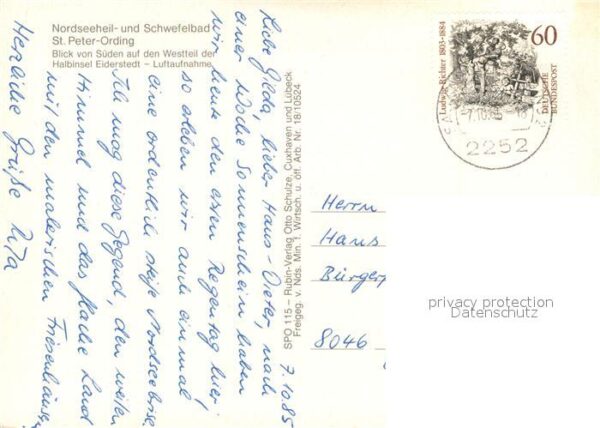 Nordseeheil- und Schwefelbad
St. Peter-Ording
Blick von Süden auf den Westteil der
Halbinsel Eiderstedt – Luftaufnahme
7.10.85
Liebe Gilda, lieber Hans-Dieter, nach
einer Woche Sonnenschein haben
wir heute den ersten Regentag hier,
so erleben wir auch einmal
eine ordentlich steife Nordseebrise.
Ich mag diese Gegend, den weiten
Himmel und das flache Land
mit den malerischen Friesenhäusern
Herzliche Grüße
SPO 115 – Rubin-Verlag Otto Schulze, Cuxhaven und Lübeck
Freigeg. v. Nds. Min. f. Wirtsch. u. öff. Arb. Nr. 18/10524
Ludwig Richter 1803-1884
60
DEUTSCHE
BUNDESPOST
2252
Herrn
Hans
8046
privacy protection
Datenschutz